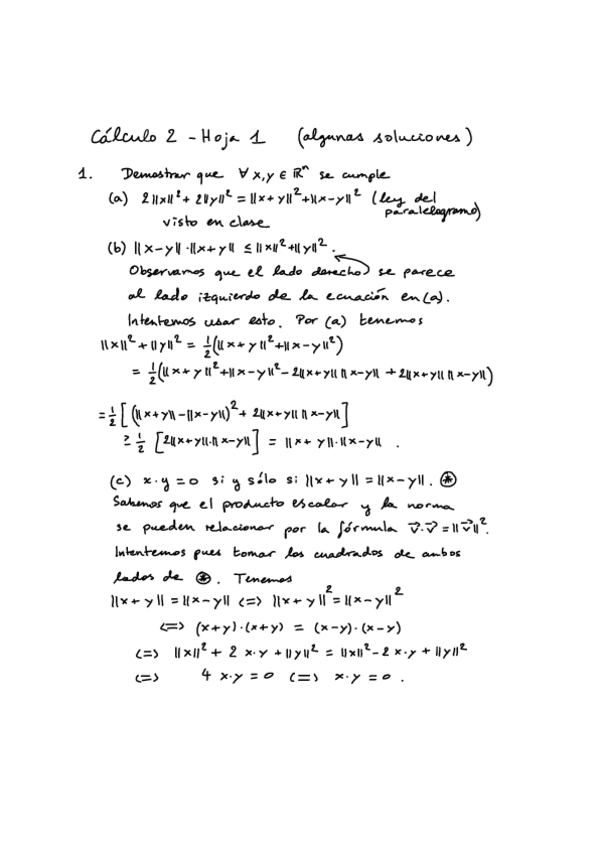 Cálculo 2 - Hoja 1 (algunas soluciones)
1. Demostrar que ∀ x, y ∈ ℝⁿ se cumple
(a) 2||x||² + 2||y||² = ||x+y||² + ||x-y||² (ley del paralelogramo)
visto en clase
(b) ||x-y||·||x+y|| ≤ ||x||² + ||y||².
Observamos que el lado derecho se parece
al lado izquierdo de la ecuación en (a).
Intentemos usar esto. Por (a) tenemos
||x||² + ||y||² = ½(||x+y||² + ||x-y||²)
= ½(||x+y||² + ||x-y||² - 2||x+y|| ||x-y|| + 2||x+y|| ||x-y||)
= ½[(||x+y|| - ||x-y||)² + 2||x+y|| ||x-y||]
≥ ½[2||x+y||·||x-y||] = ||x+y||·||x-y|| .
(c) x·y = 0 si y sólo si ||x+y|| = ||x-y||. ⊛
Sabemos que el producto escalar y la norma
se pueden relacionar por la fórmula v⃗·v⃗ = ||v⃗||².
Intentemos pues tomar los cuadrados de ambos
lados de ⊛. Tenemos
||x+y|| = ||x-y|| <=> ||x+y||² = ||x-y||²
<=> (x+y)·(x+y) = (x-y)·(x-y)
<=> ||x||² + 2 x·y + ||y||² = ||x||² - 2 x·y + ||y||²
<=> 4 x·y = 0 <=> x·y = 0 .